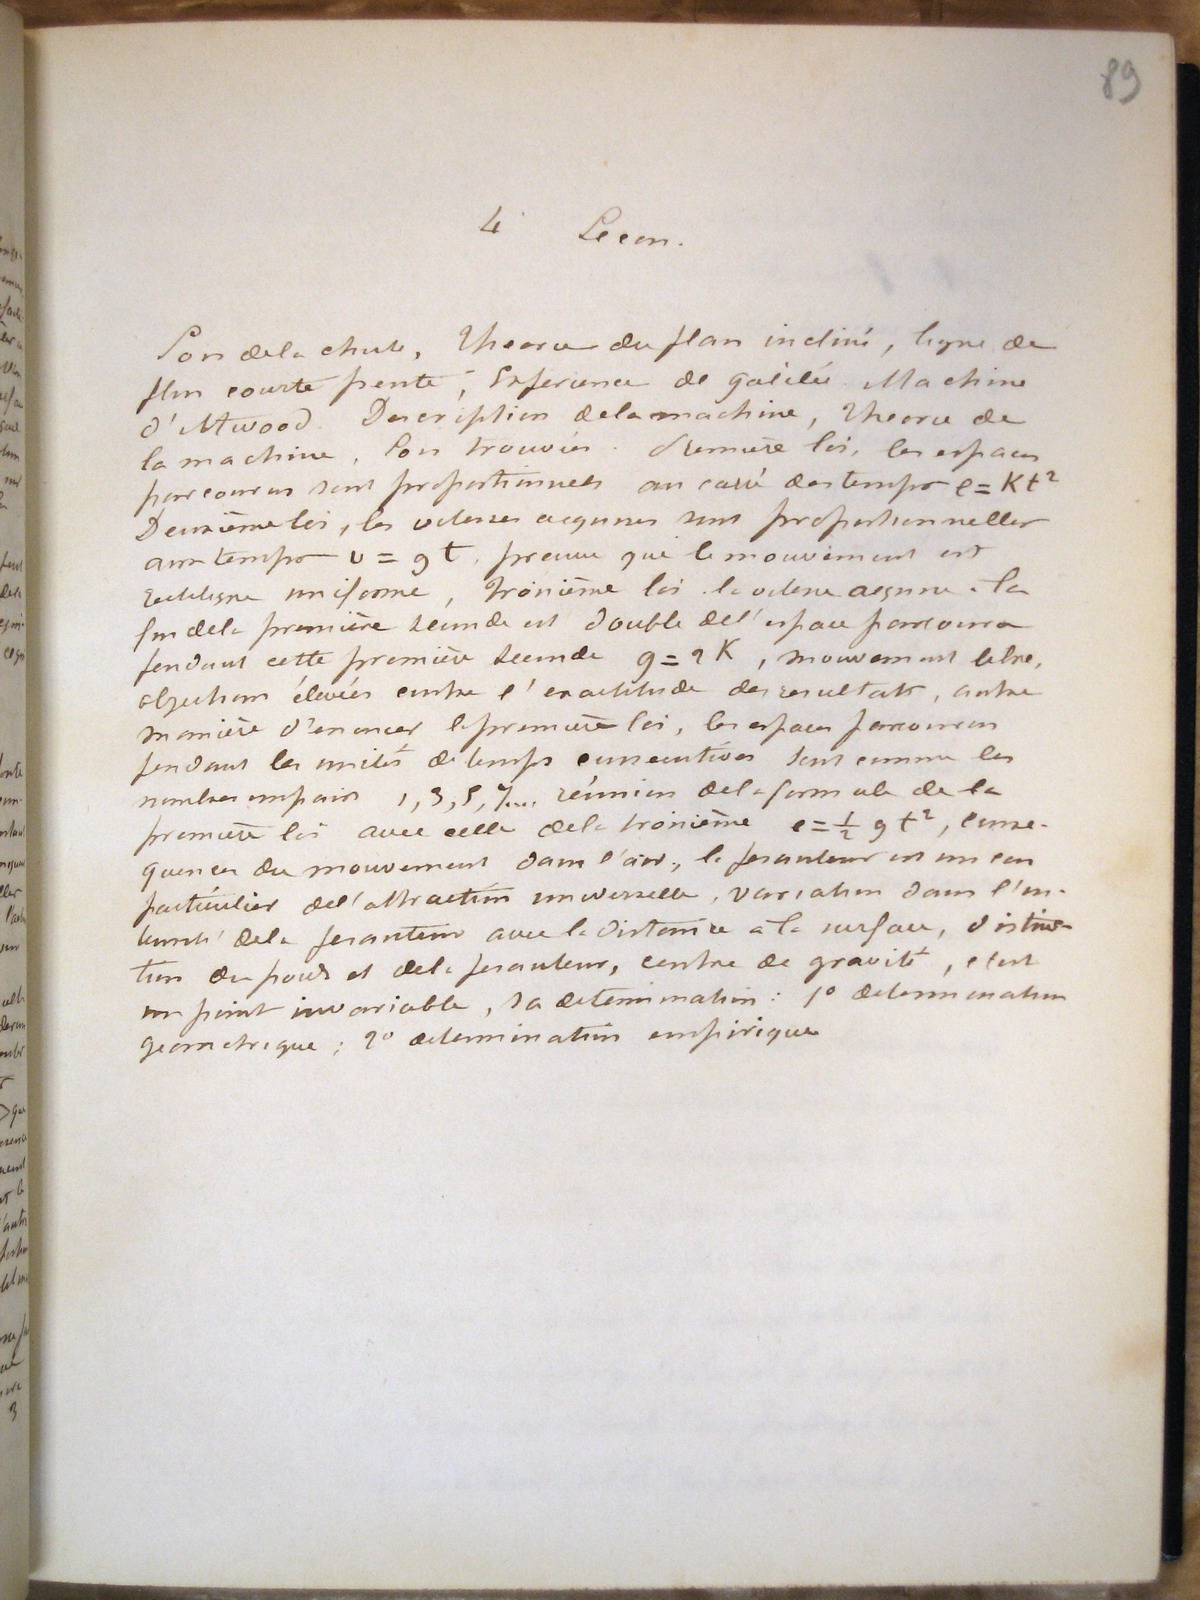 89
4 Lecon.
Lois de la chute, Theorie du plan incliné, ligne de
plus courte pente, Experience de galilée Machine
d'Atwood. Description de la machine, Theorie de
la machine, Lois trouvées. Premiere loi, les espaces
parcourus sont proportionnels au carré des temps e = Kt²
Deuxième loi, les vitesses acquises sont proportionnelles
aux temps v = gt, preuve que le mouvement est
rectiligne uniforme, troisième loi la vitesse acquise a la
fin de la première seconde est double de l'espace parcouru
pendant cette première seconde g = 2K, mouvement libre,
objections élevées contre l'exactitude des resultats, autre
manière d'enoncer la première loi, les espaces parcourus
pendant les unités de temps consecutives sont comme les
nombres impairs 1, 3, 5, 7... réunion de la formule de la
première loi avec celle de la troisième e = ½ gt², conse-
quences du mouvement dans l'air, la pesanteur est un cas
particulier de l'attraction universelle, variation dans l'in-
tensité de la pesanteur avec la distance a la surface, distinc-
tion du poids et de la pesanteur, centre de gravité, c'est
un point invariable, sa determination : 1° determination
geometrique ; 2° determination empirique